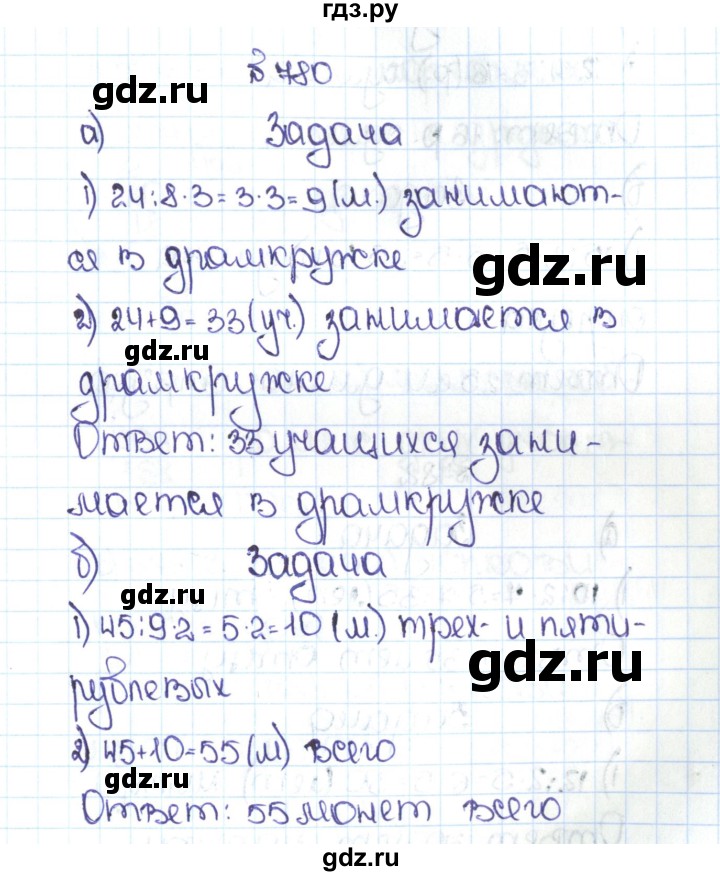 гдз.ру
№ 780
gdz.ru
а) Задача
1) 24:8·3=3·3=9(м.) занимают-
ся в драмкружке
gdz.ru
2) 24+9=33(уч.) занимается в
gdz.ru
драмкружке
Ответ: 33 учащихся зани-
мается в драмкружке
б) Задача
gdz.ru
1) 45:9·2=5·2=10(м.) трех- и пяти-
gdz.ru
рублевых
2) 45+10=55(м) всего
gdz.ru
Ответ: 55 монет всего
gdz.ru